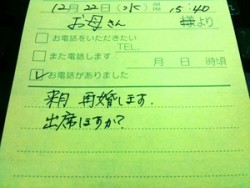 12月22日(水) 15:40
お母さん 様より
□お電話をいただきたい
TEL.
□また電話します 月 日 時頃
☑お電話がありました
来月 再婚します.
出席しますか?